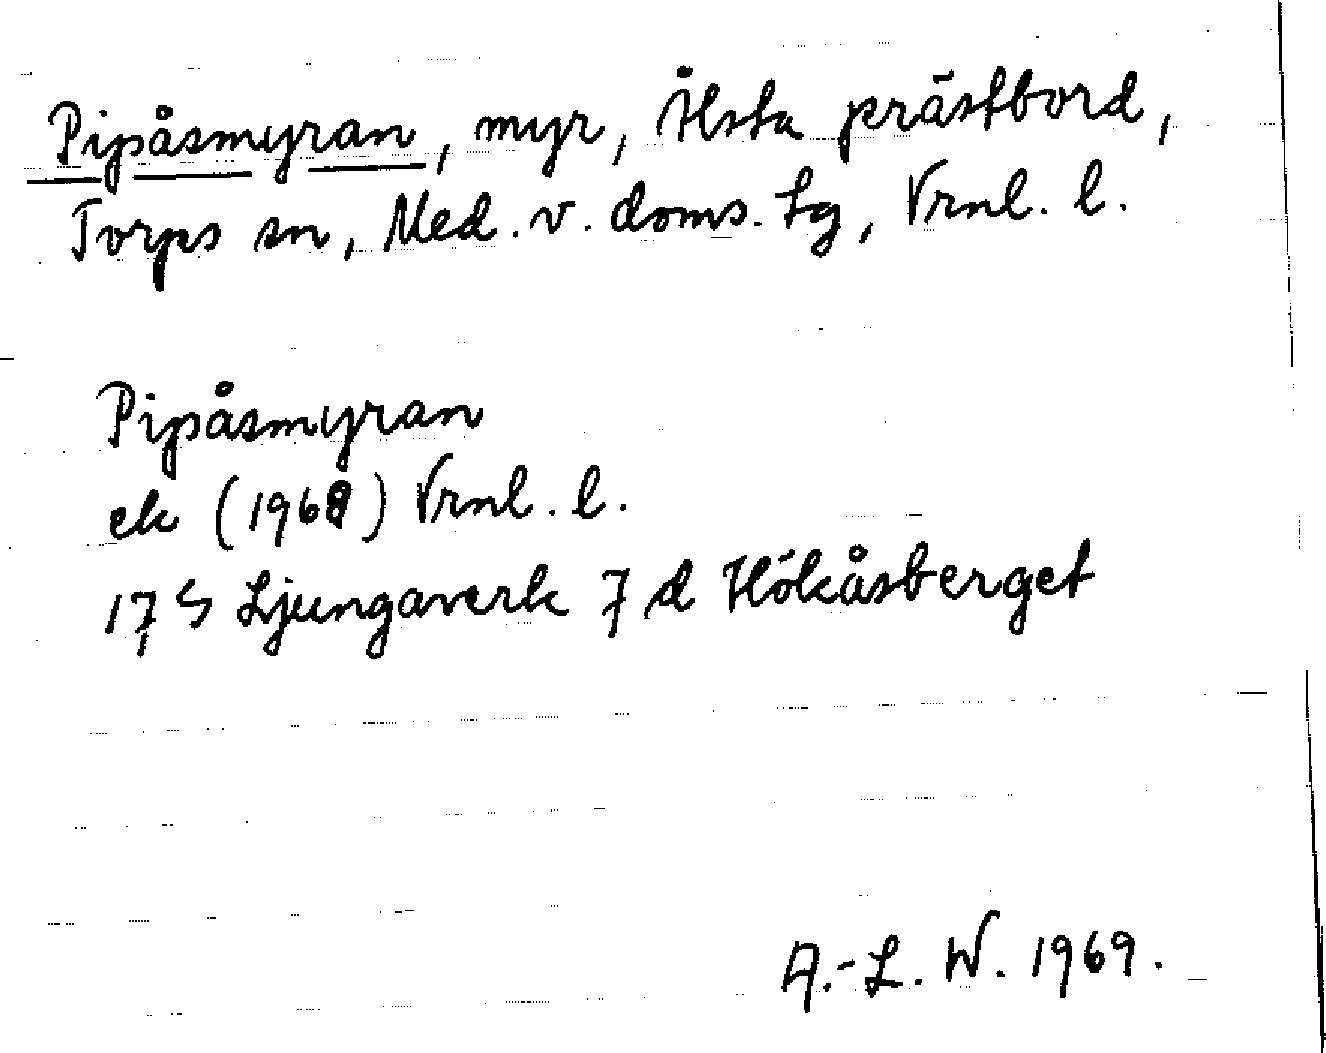 Pipåsmyran, myr, Ålsta prästbord,
Torps sn, Med. v. doms. tg, Vrnl. l.
Pipåsmyran
ek (1968) Vrnl. l.
17 S Ljungaverk 7 d Hökåsberget
A.-L. W. 1969.